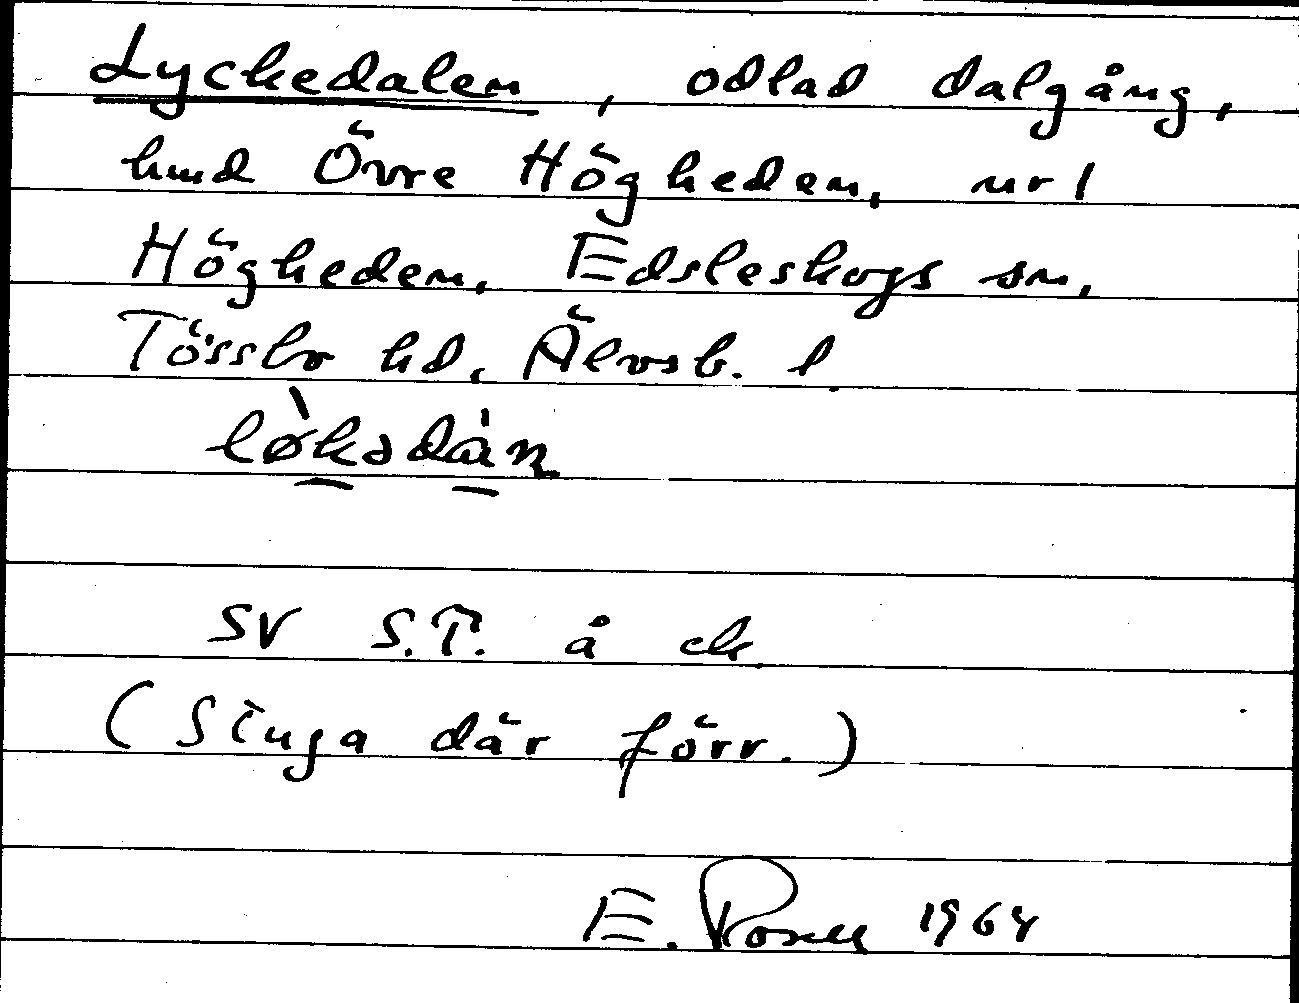 Lyckedalen, odlad dalgång,
hmd Övre Högheden, nr 1
Högheden, Edsleskogs sn,
Tössbo hd, Älvsb. l.
løkədàn
SV S.T. å ek.
(Stuga där förr.)
E. Rosell 1964